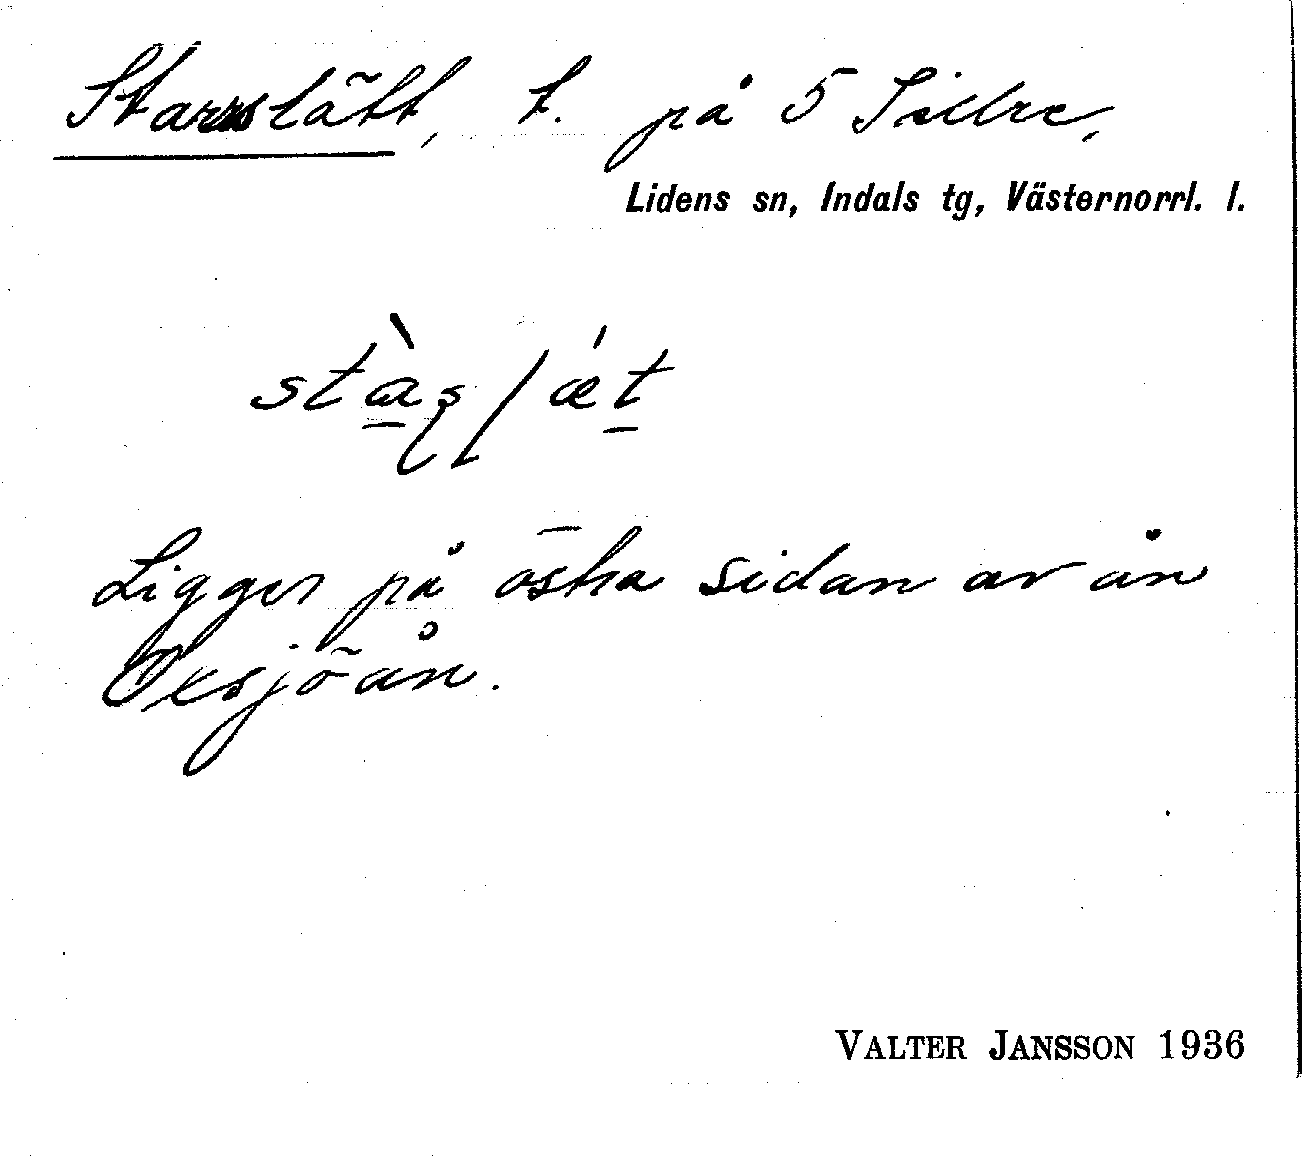 Starrslätt, t. på 5 Sillre,
Lidens sn, Indals tg, Västernorrl. l.
Ligger på östra sidan av ån
Oxsjöån.
VALTER JANSSON 1936